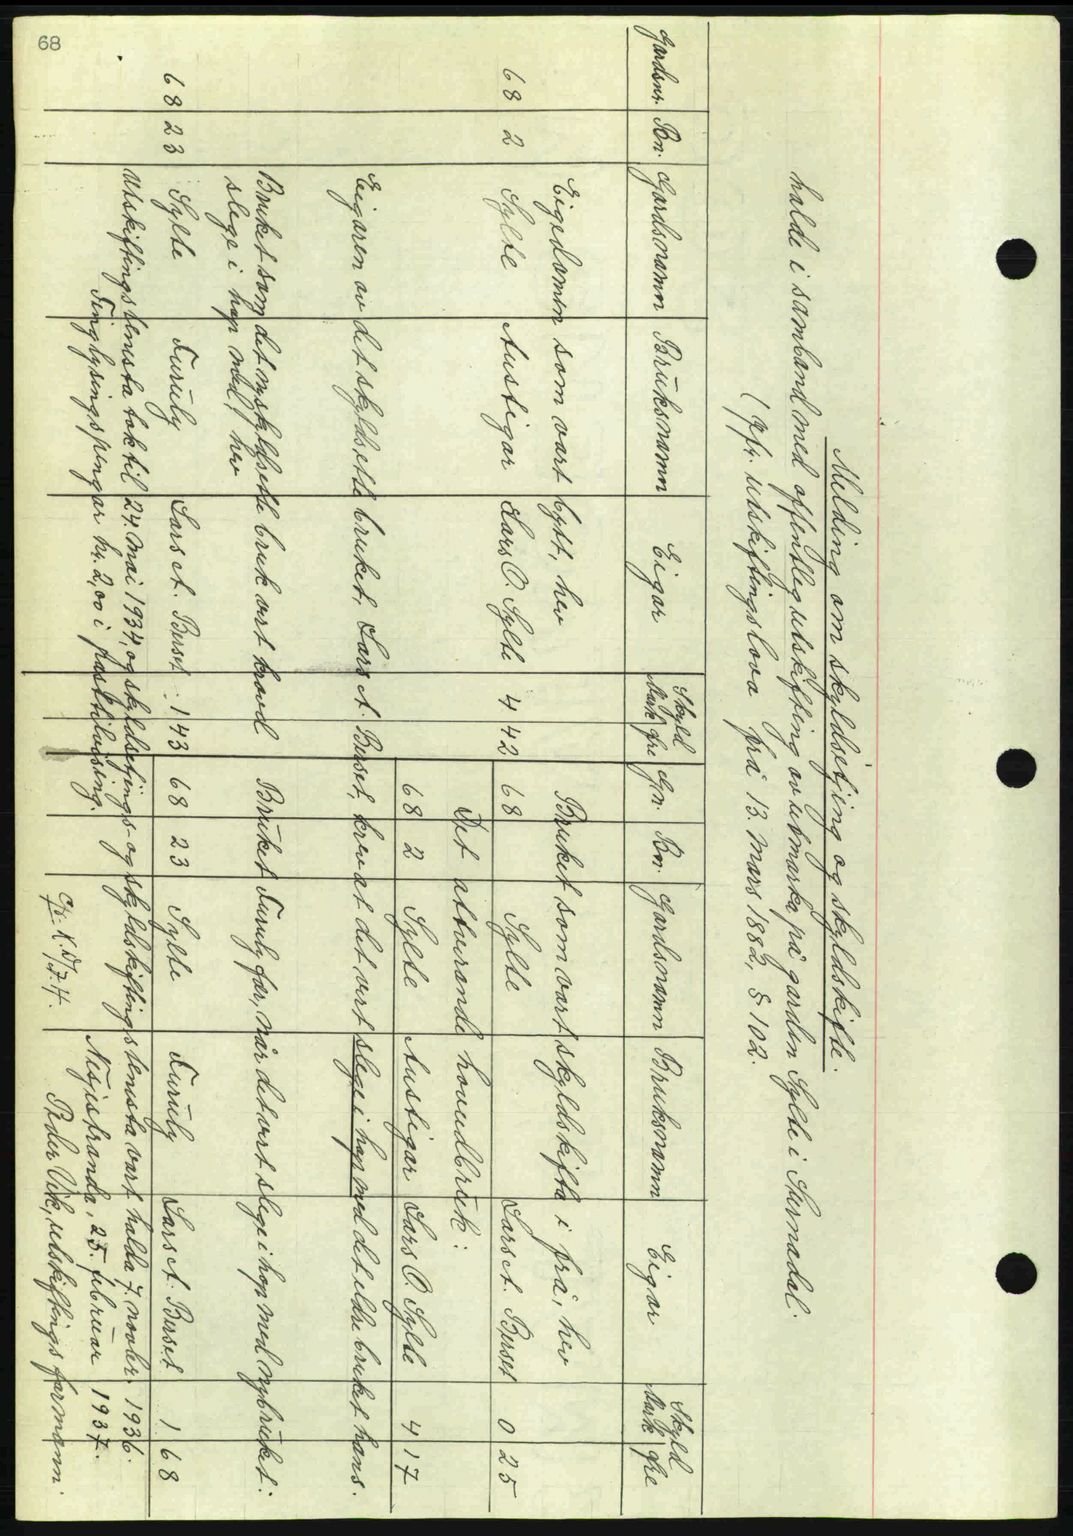 68
Melding om skyldsetjing og skyldskifte.
halde i samband med offentleg utskifting av utmarka på garden Sylte i Surnadal.
(Jfr. utskiftingslova frå 13. Mars 1882, § 102.
Gardsnr. Bn. Gardsnamn Bruksnamn Eigar Skyld Mark Øre Gn. Bn. Gardsnamn Bruksnamn Eigar Skyld Mark Øre
Eigedomen som vart bytt, hev Bruket som vart skyldskifta i frå, hev
68 2 Sylte Austigar Lars O. Sylte 4 42 68 Sylte Lars A. Buset 0 25
Det attverande hovudbruk:
68 2 Sylte Austigar Lars O Sylte 4 17
Eigaren av det skyldsette bruket, Lars A. Buset, krev at det vert slege i hop med det eldre bruket hans.
Bruket som det nyskyldsette bruk vert kravd Bruket Furuly får, når det vert slege i hop med nybruket:
slege i hop med, hev
68 23 Sylte Furuly Lars A. Buset 1 43 68 23 Sylte Furuly Lars A. Buset 1 68
Utskiftingstenesta tok til 24. mai 1934, og skyldsetjings- og skyldskiftingstenesta vart halda 7. novbr. 1936.
Tinglysingspengar kr. 2,00 i
Nesjestranda, 25. februar 1937.
Peder Vik, utskiftingsformann.